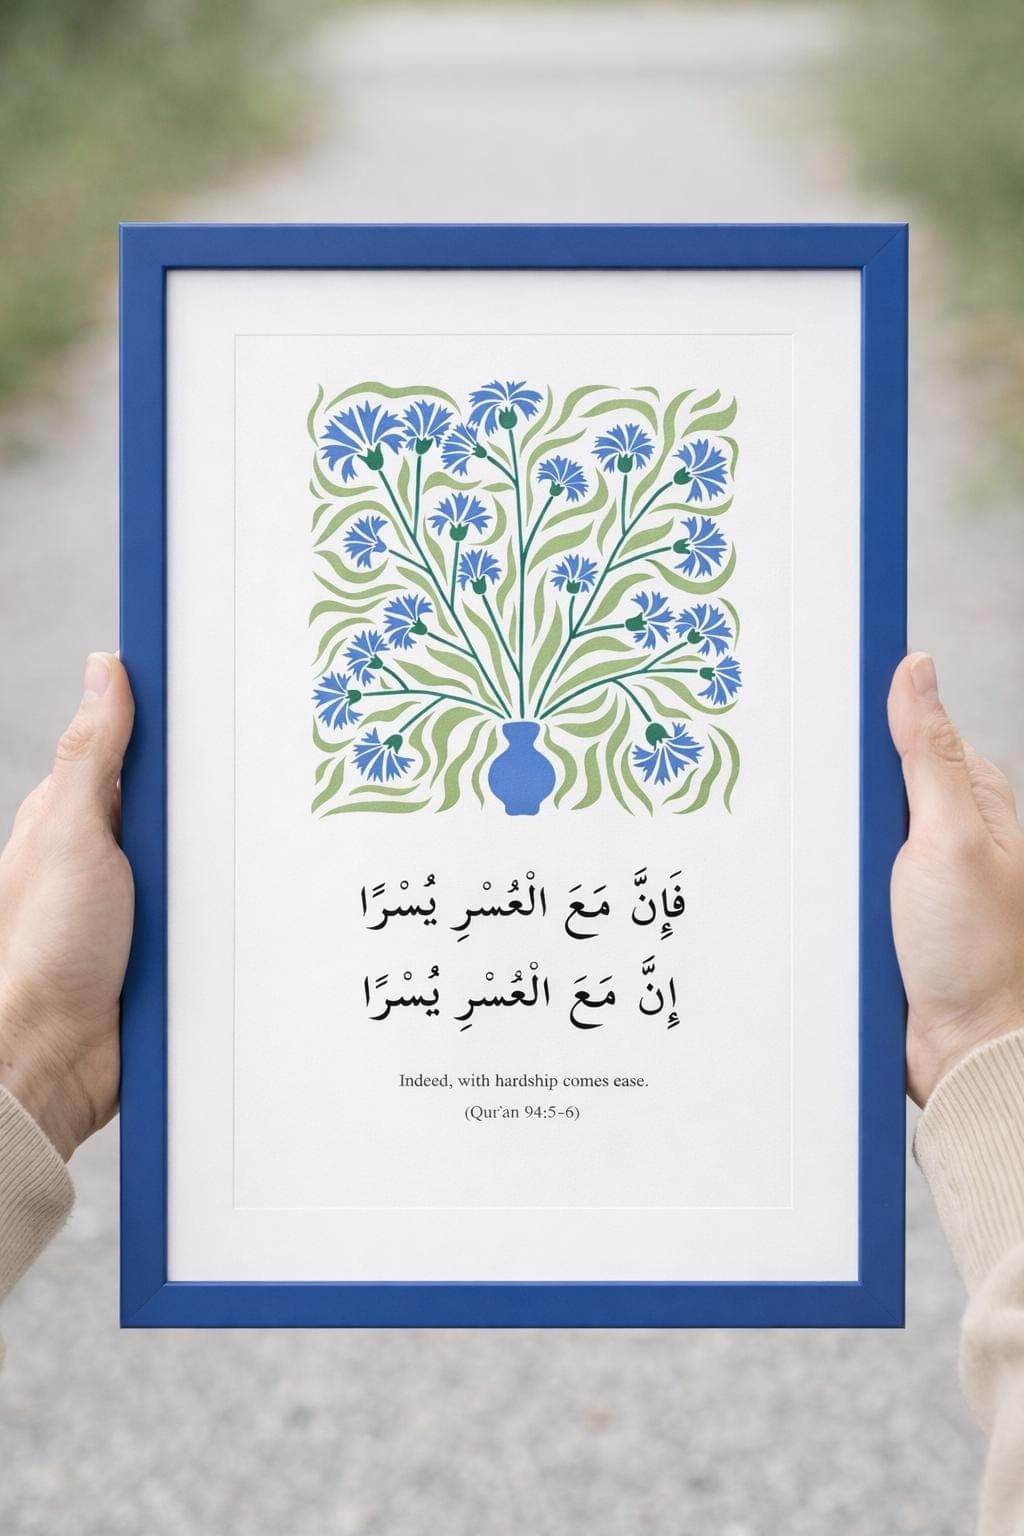 فَإِنَّ مَعَ الْعُسْرِ يُسْرًا
إِنَّ مَعَ الْعُسْرِ يُسْرًا
Indeed, with hardship comes ease.
(Qur'an 94:5-6)